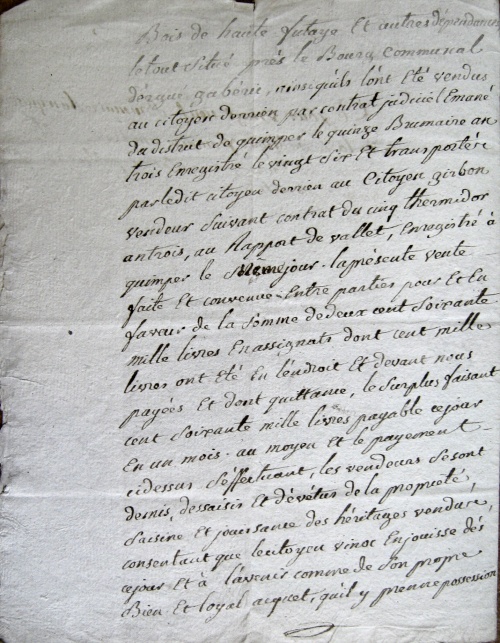 Bois de haute futaye Et autres dépendances
le tout Situé près le Bourg Communal
d'ergué gabéric, ainsi qu'ils sont Eté vendus
au citoyen derrien par contrat judiciel Emané
du district de quimper le quinze Brumaire an
trois Enregistré le vingt Six Et transporté
par ledit citoyen derrien au Citoyen girbon
vendeur Suivant contrat du cinq thermidor
an trois, au Rapport de vallet, Enregistré à
quimper le Meme jour. la présente vente
faite Et convenue Entre parties pour Et En
faveur de la Somme de deux cent Soixante
mille livres En assignats dont cent mille
livres ont Eté En l'endroit Et devant nous
payées Et dont quittance, le Surplus faisant
cent Soixante mille livres payable ce jour
En un mois. au moyen Et le payement
cidessus S'effectuant, les vendeurs Se sont
demis, dessaisis Et dévétus de la propriété,
Saisine Et jouissance des héritages vendus,
consentant que le citoyen vinoc En jouisse dés
ce jour Et à l'avenir comme de Son propre
Bien Et loyal acquet, qu'il y prenne possession